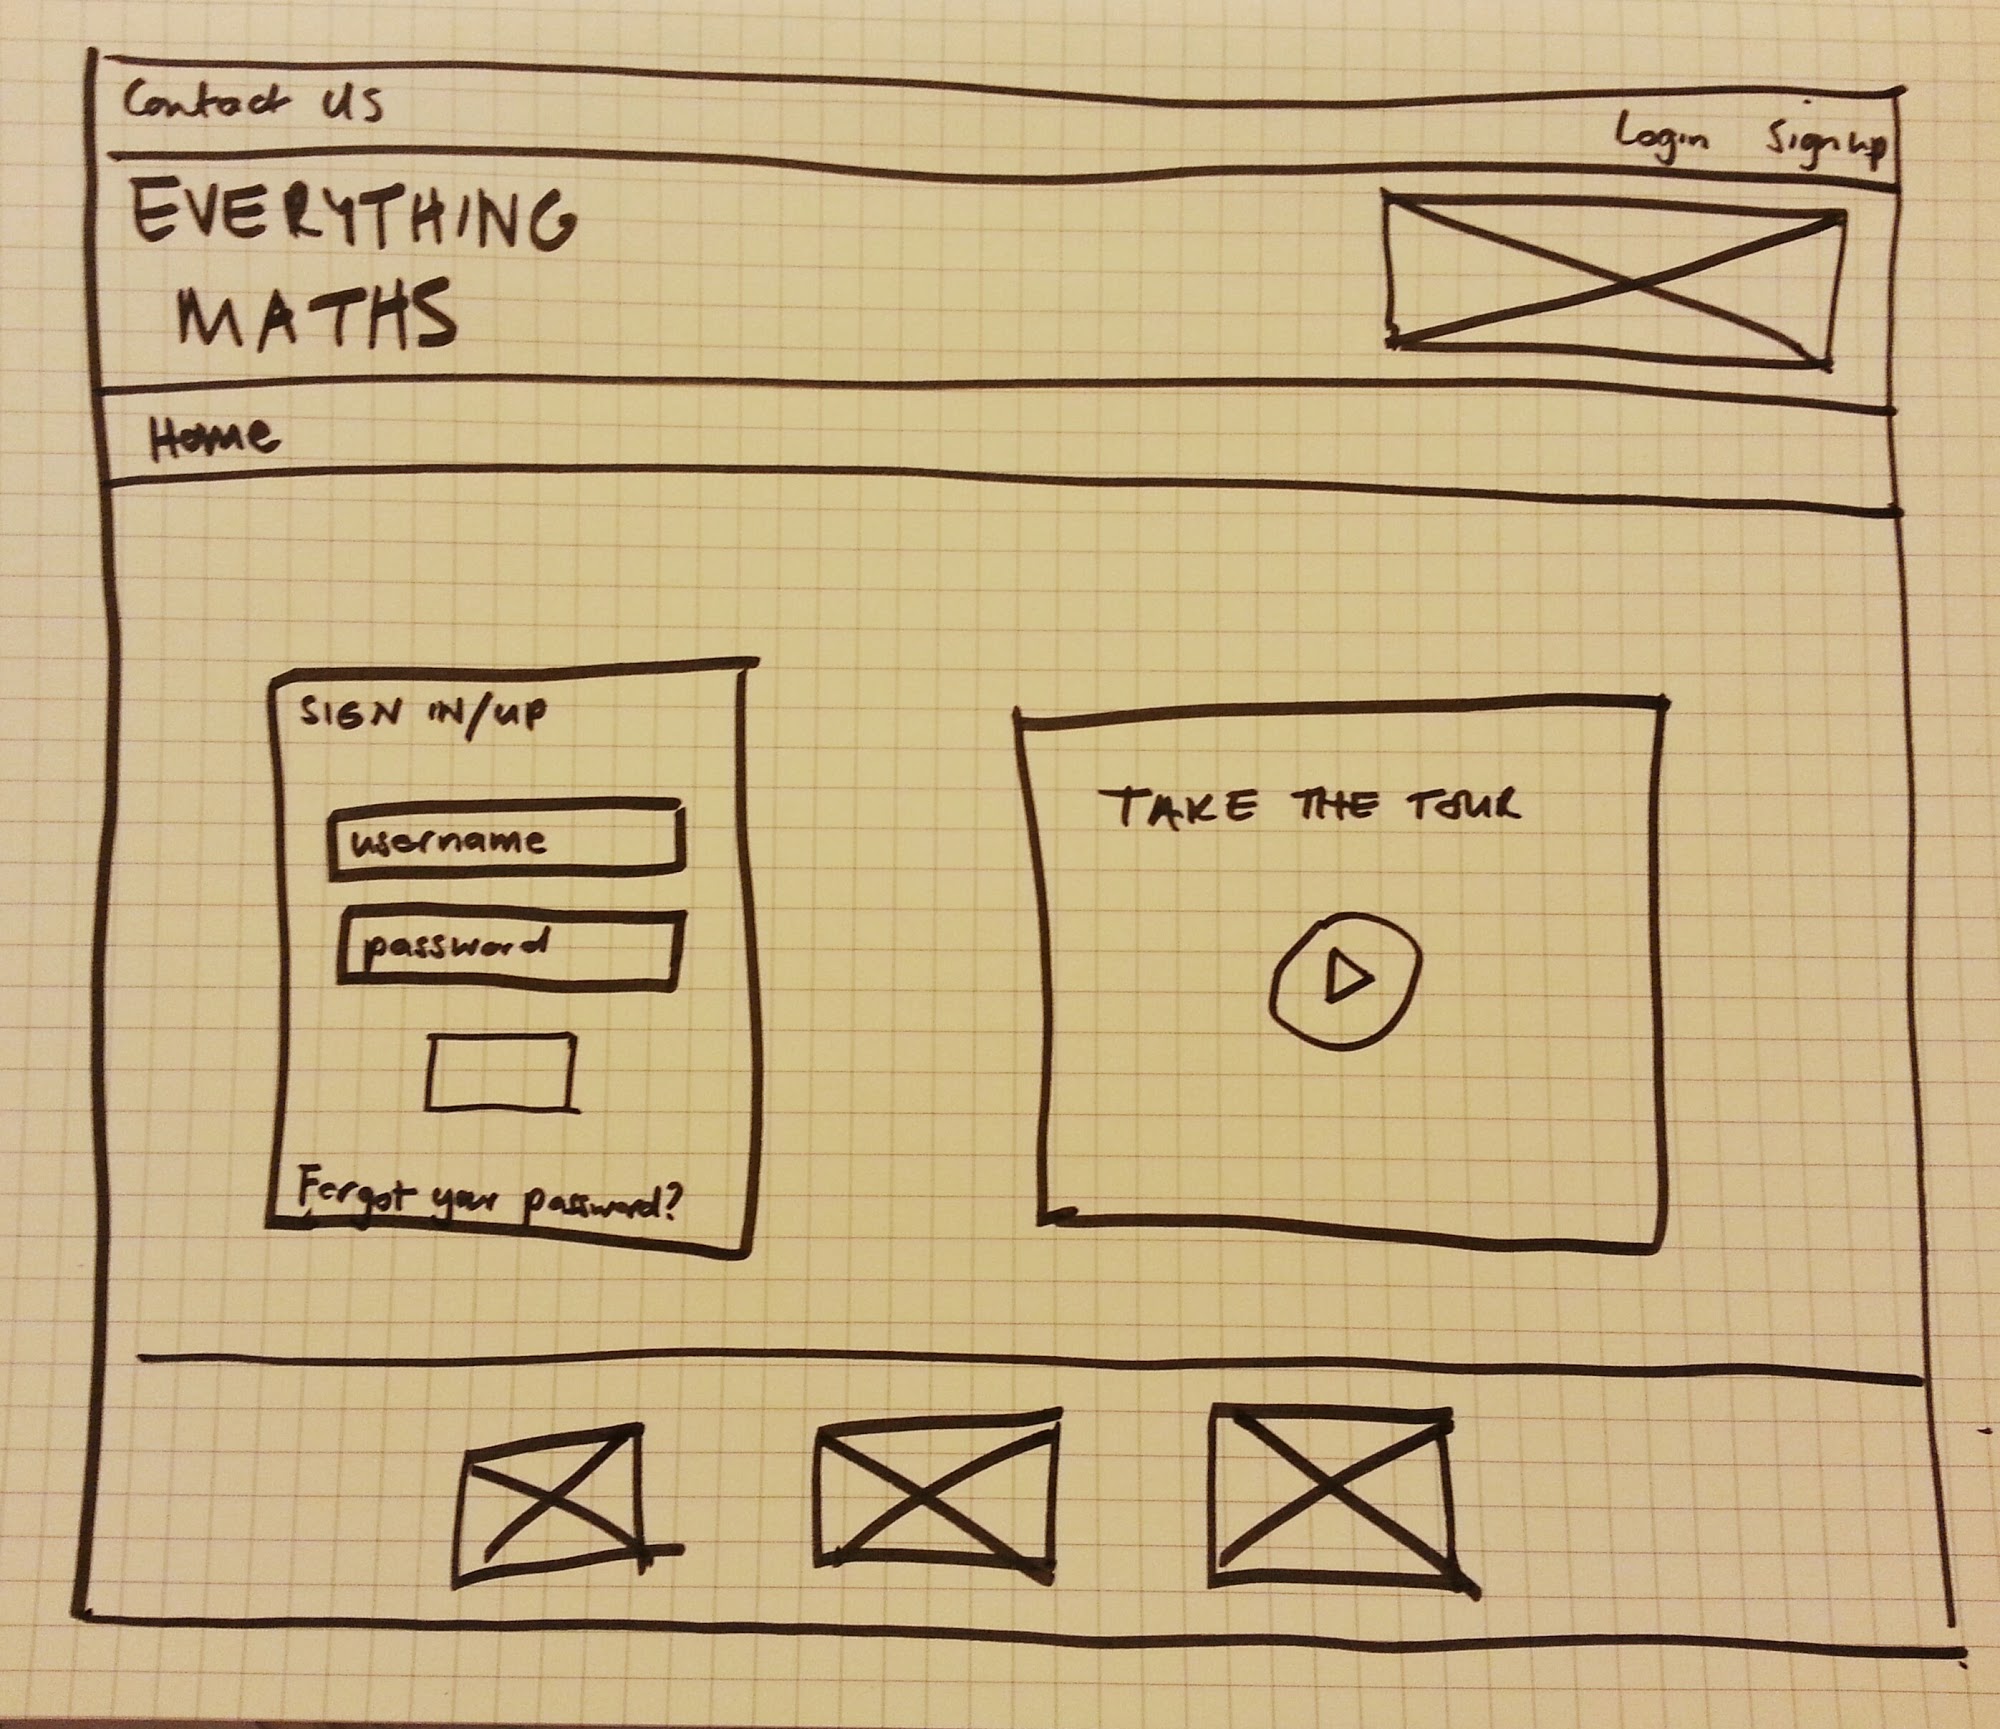 Contact Us
Login Sign up
EVERYTHING
MATHS
Home
SIGN IN/UP
username
password
Forgot your password?
TAKE THE TOUR